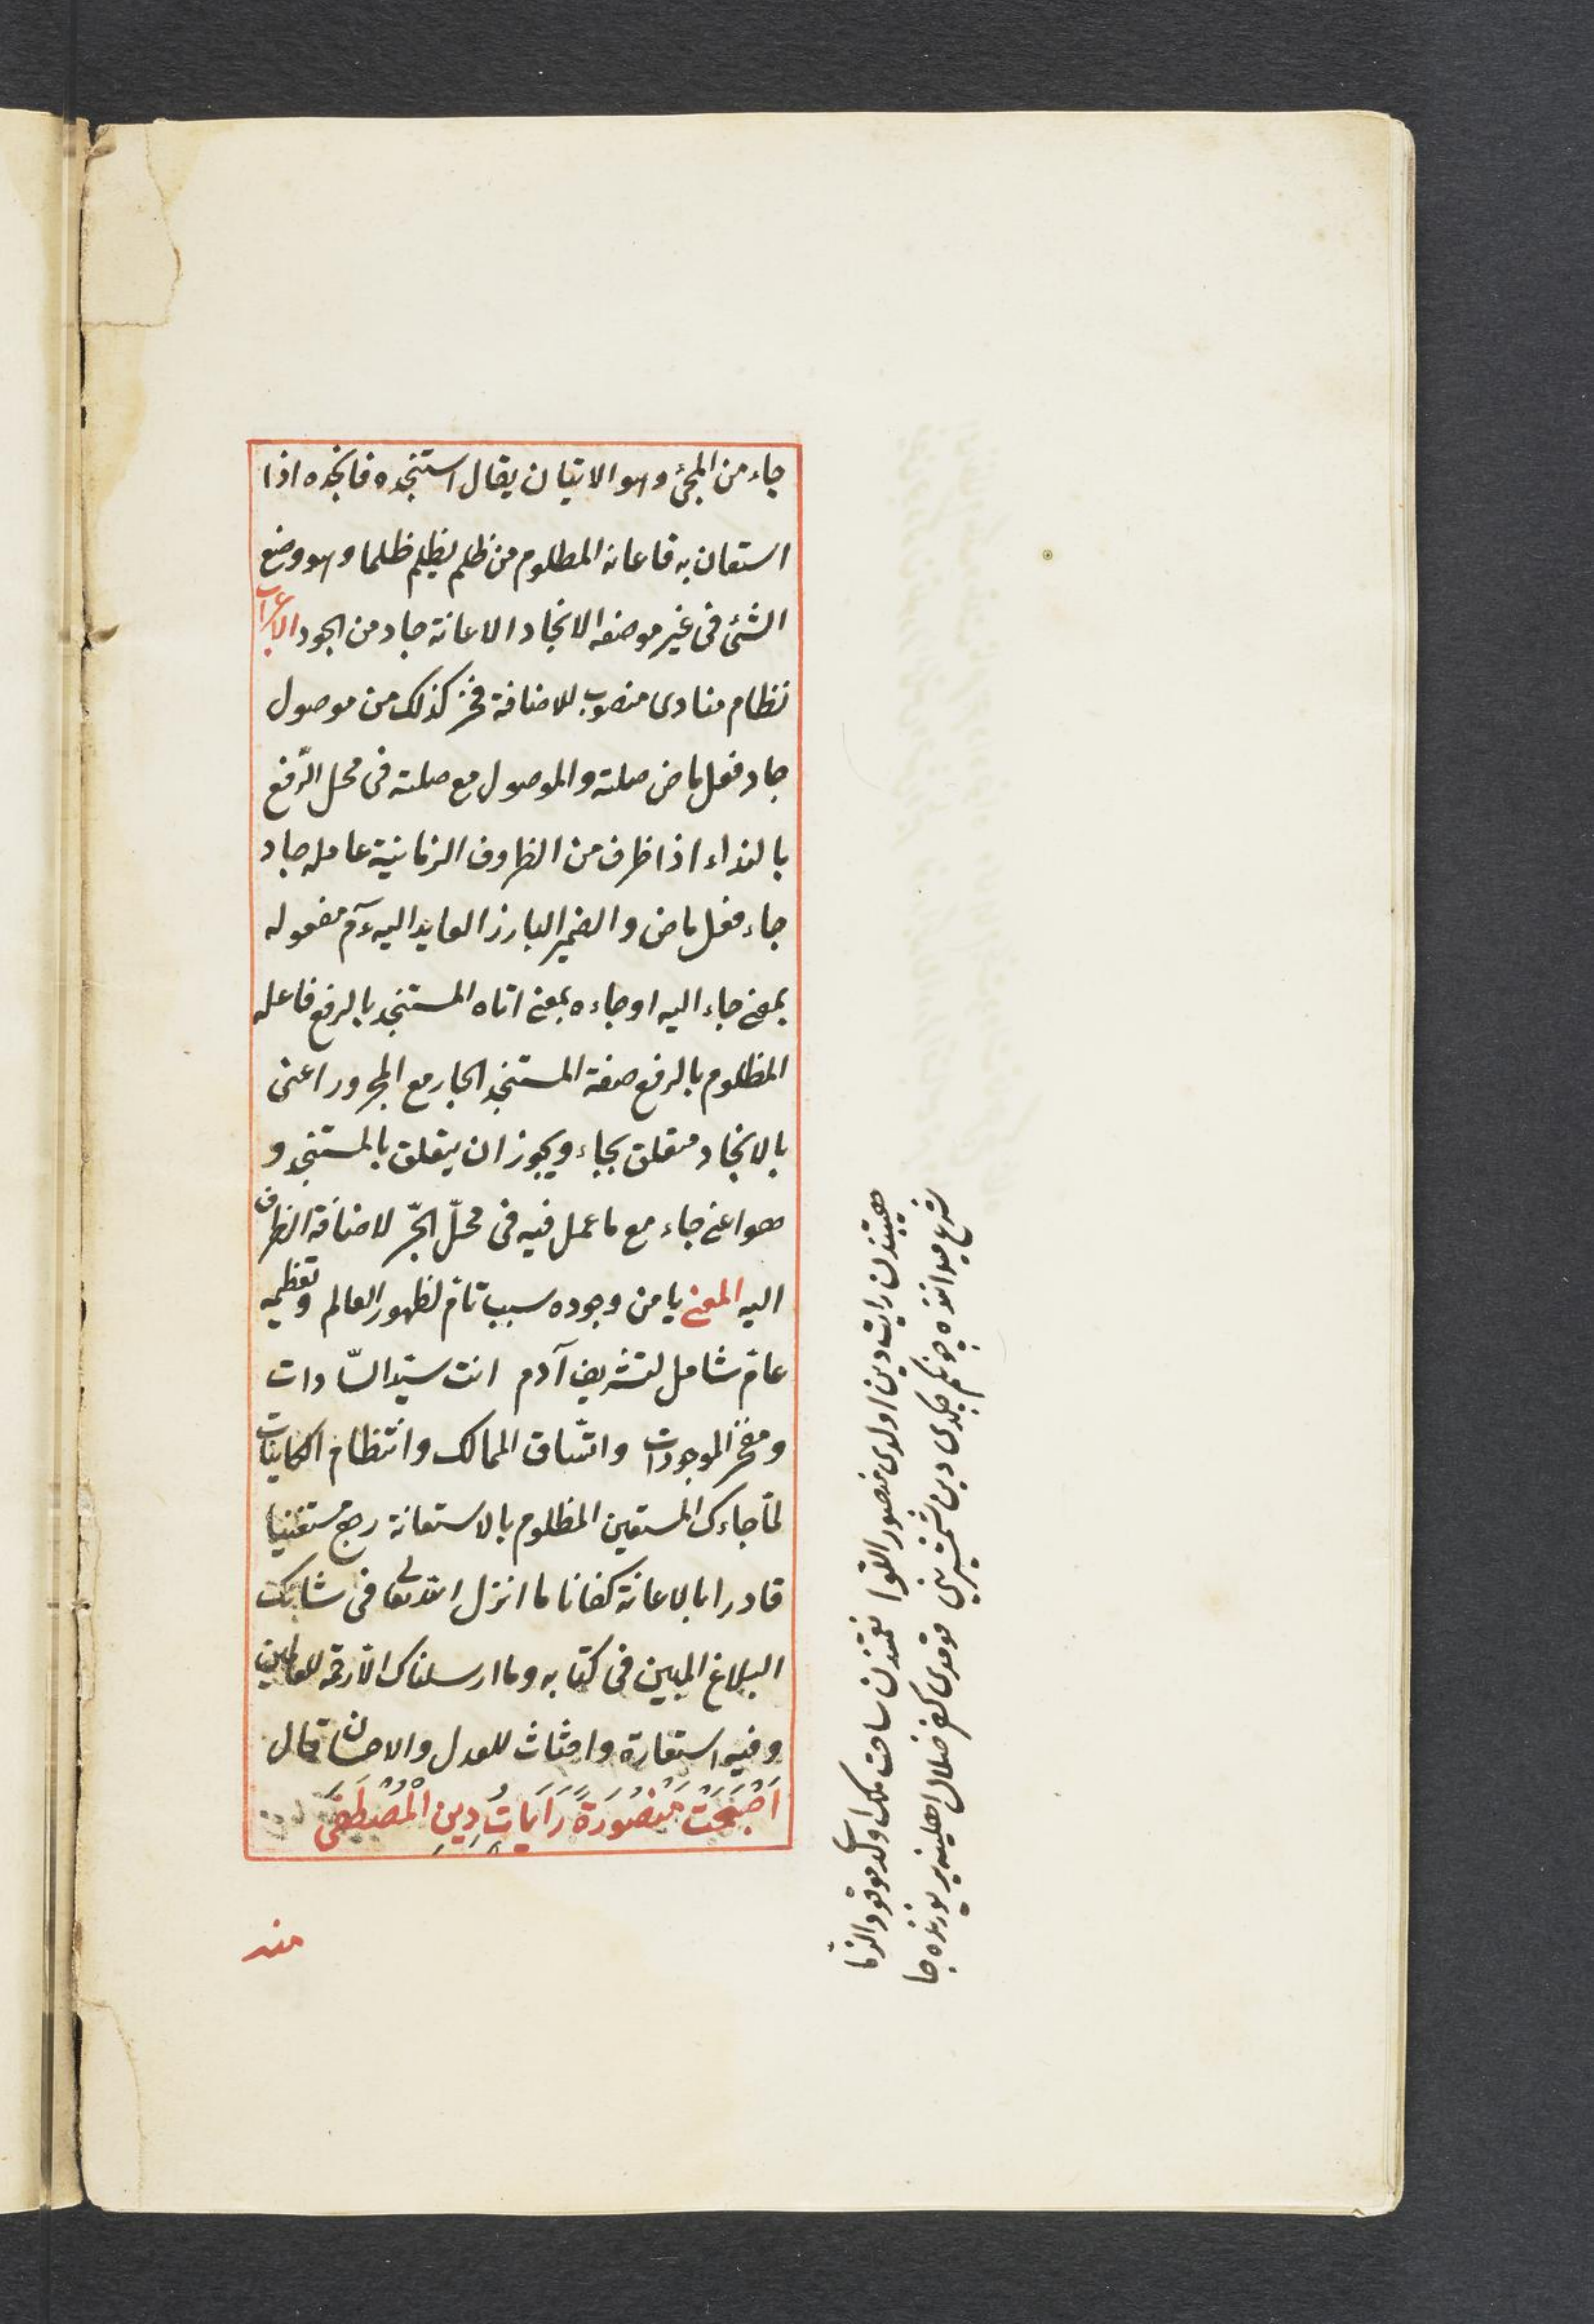 جاء من المجئ وهو الاتيان يقال استنجده فانجده اذا
استعان به فاعانه المظلوم من ظلم يظلم ظلما وهو وضع
الشئ فى غير موضعه الانجاد الاعانة جاد من الجود الاعراب
نظام منادى منصوب للاضافة فخر كذلك من موصول
جاد فعل ماض صلته والموصول مع صلته فى محل الرّفع
بالنداء اذا ظرف من الظروف الزمانية عامله جاد
جاء فعل ماض والضمير البارز العايد اليه عم مفعوله
بمعنى جاء اليه او جاءه بمعنى اتاه المستنجد بالرفع فاعله
المظلوم بالرفع صفة المستنجد الجار مع المجرور اعنى
بالانجاد متعلق بجاء ويجوز ان يتعلق بالمستنجد و
هو اعنى جاء مع ما عمل فيه فى محلّ الجّر لاضافة الظرف
اليه المعنى يا من وجوده سبب تامّ لظهور العالم وتعظيمه
عامّ شامل لتشريف آدم انت سيّد السّادات
ومفخر الموجودات واتّساق الممالك وانتظام الكاينات
لمّا جاءك المستعين المظلوم بالاستعانة رجع مستغنيا
قادرا بالاعانة كفانا ما انزل الله تعالى فى شانك
البلاغ المبين فى كتابه وما ارسلناك الّا رحمة للعالمين
وفيه استعارة وامتثاث للعدل والاحسان قال
اَصْبَحَتْ مَنْصُورَةً رَايَاتُ دِينِ الْمُصْطَفَى
هيبتندن رايت دين اولدى منصور اللّوا نقمتندن ساحت ملك اولد
شرع ميداننده چونكم چكدى دين شمشيرينى قومدى كفر ضلال اهلينه ير يوزنده جا
منه